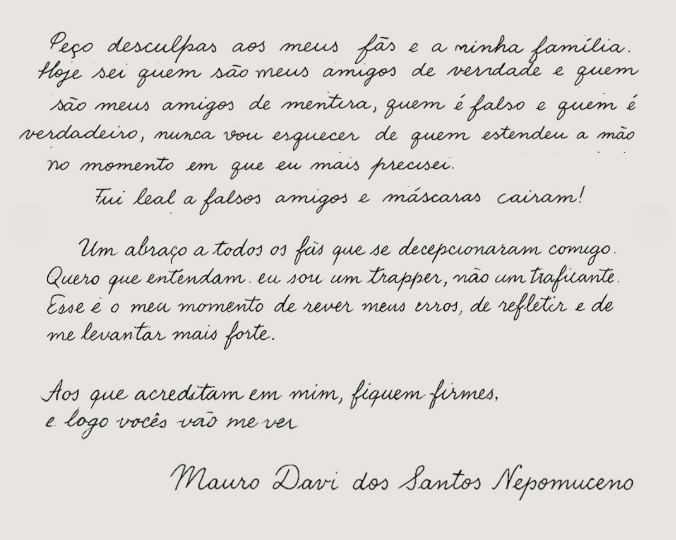 Peço desculpas aos meus fãs e a minha família.
Hoje sei quem são meus amigos de verdade e quem
são meus amigos de mentira, quem é falso e quem é
verdadeiro, nunca vou esquecer de quem estendeu a mão
no momento em que eu mais precisei.
Fui leal a falsos amigos e máscaras cairam!
Um abraço a todos os fãs que se decepcionaram comigo.
Quero que entendam. eu sou um trapper, não um traficante.
Esse é o meu momento de rever meus erros, de refletir e de
me levantar mais forte.
Aos que acreditam em mim, fiquem firmes,
e logo vocês vão me ver
Mauro Davi dos Santos Nepomuceno